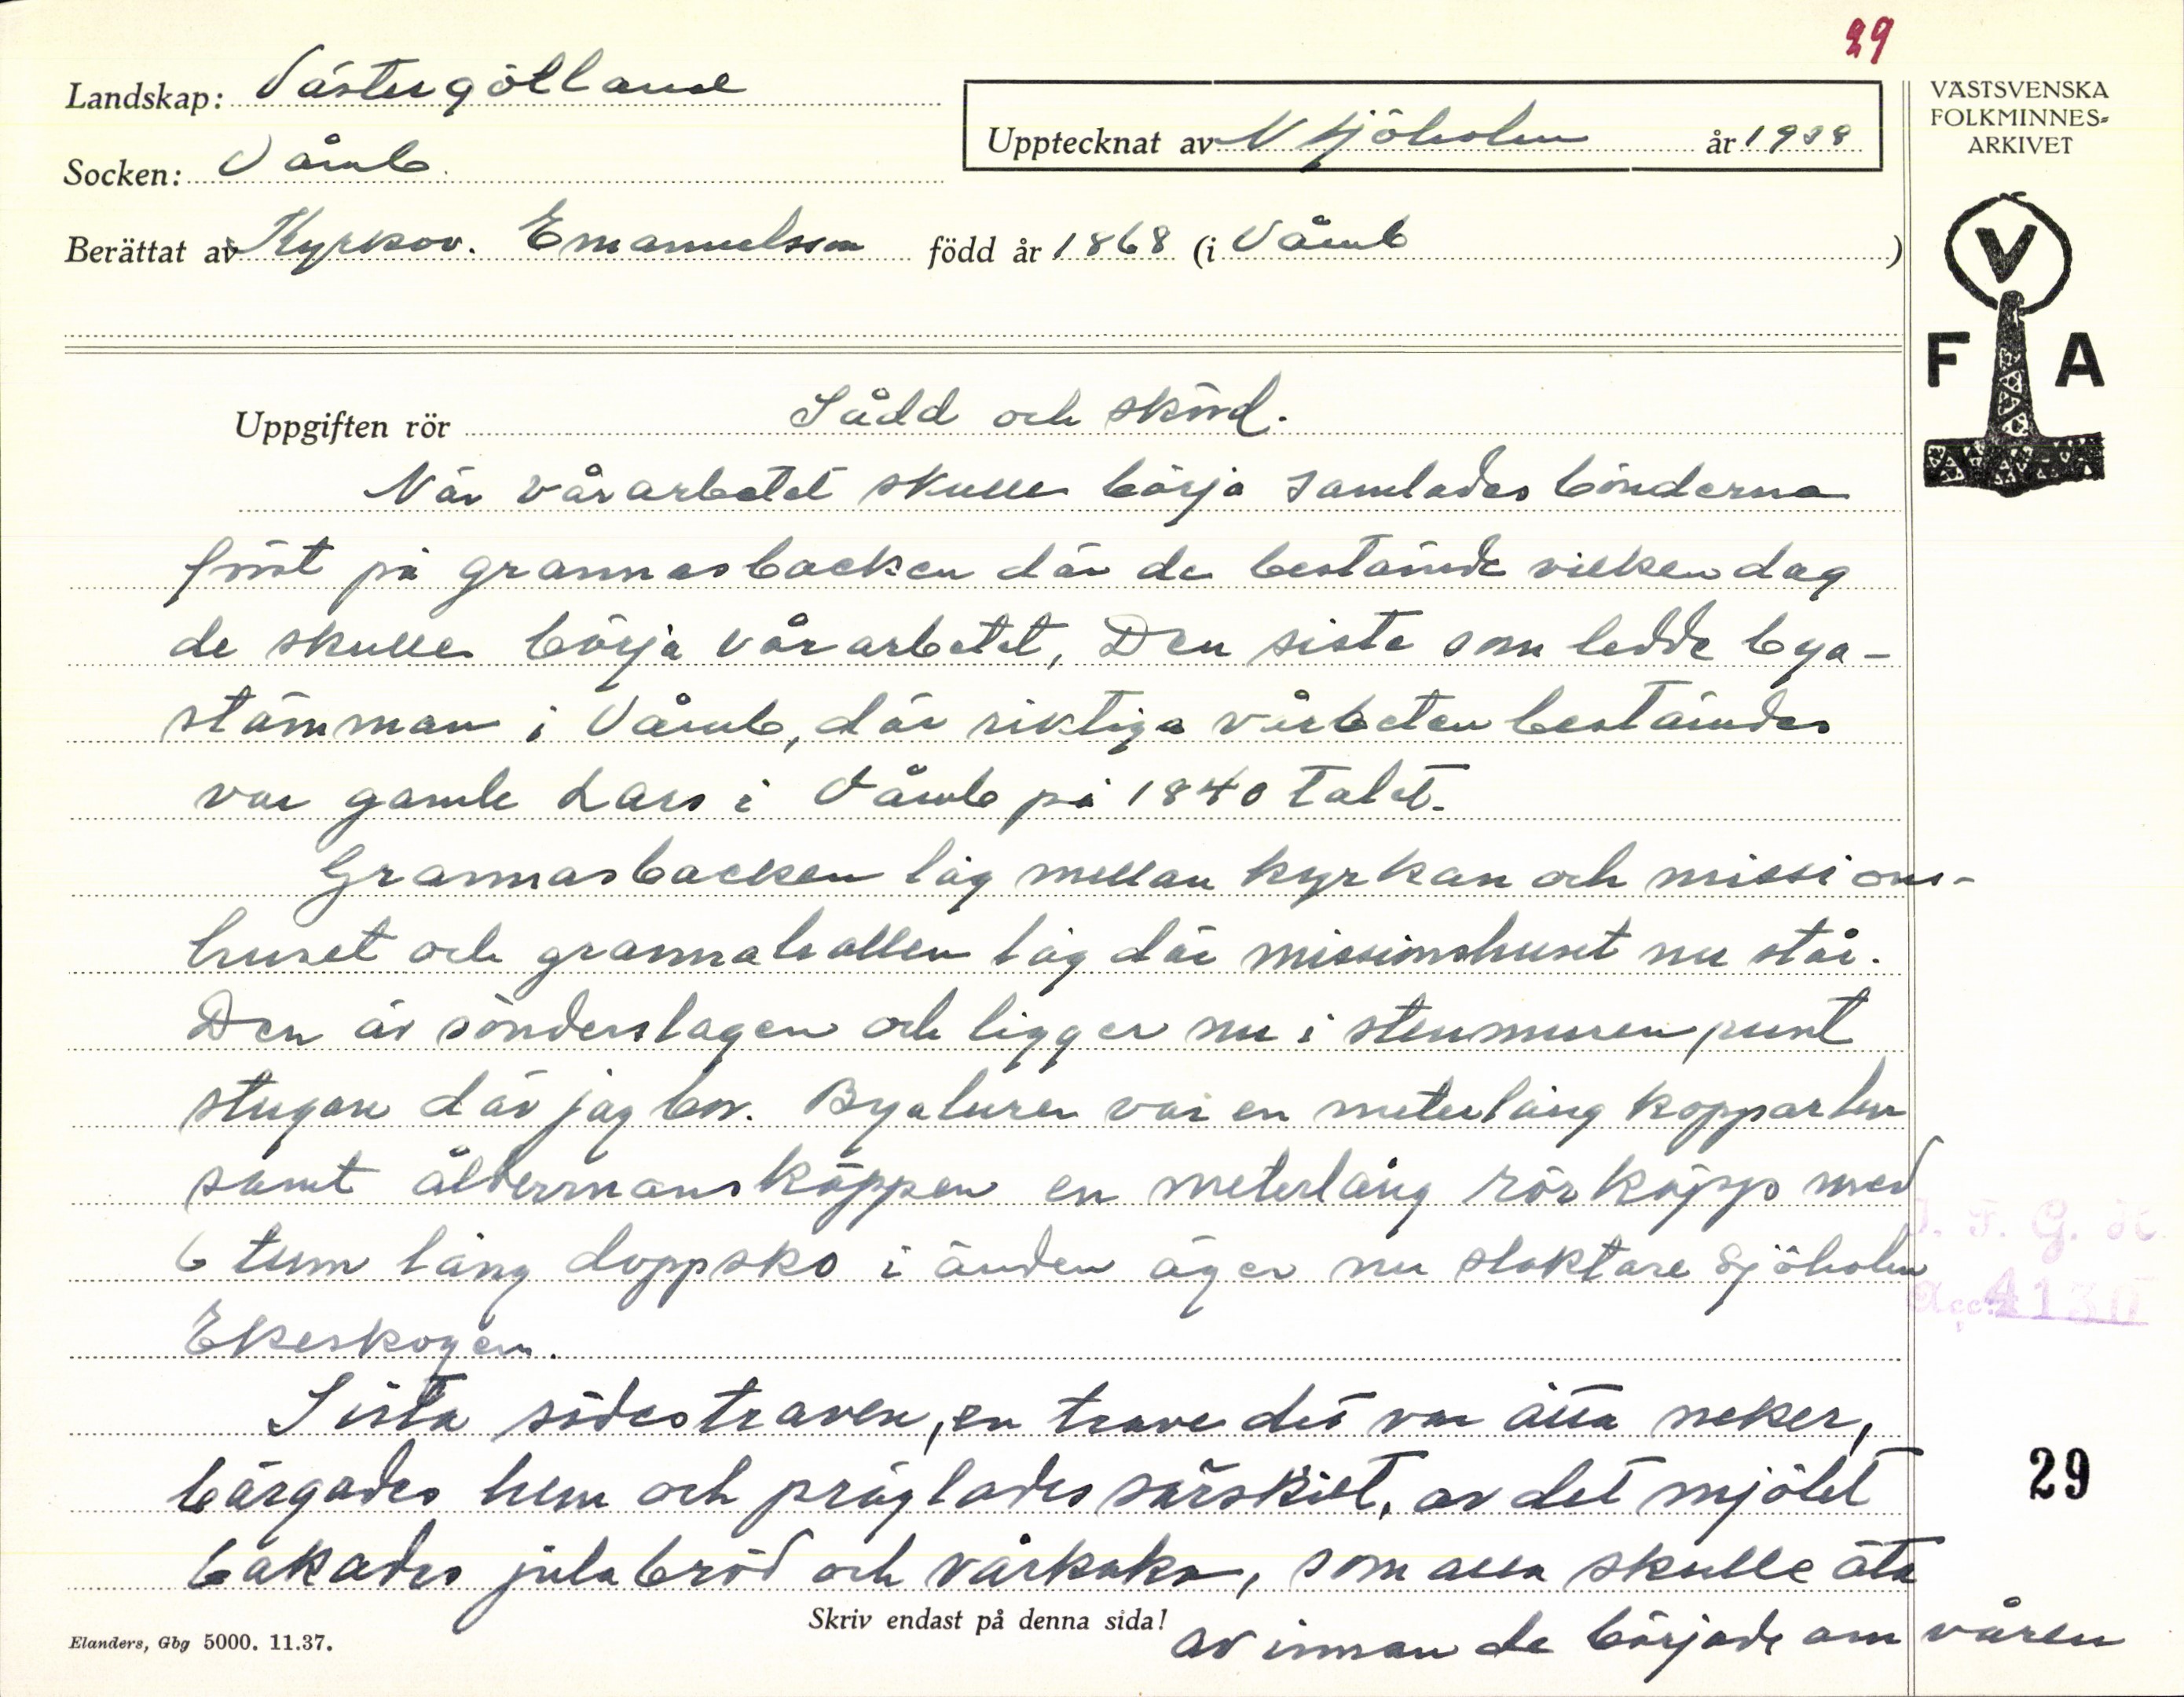 29
Landskap: Västergötland
Socken: Våmb
Upptecknat av N Sjöholm år 1938
Berättat av Kyrkov. Emanuelsson född år 1868 (i Våmb )
VÄSTSVENSKA
FOLKMINNES-
ARKIVET
V
F A
Uppgiften rör Sådd och skörd.
När vårarbetet skulle börja samlades bönderna
först på grannasbacken där de bestämde vilken dag
de skulle börja vårarbetet, Den siste som ledde bya-
stämman i Våmb, där riktiga vårbeten bestämdes
var gamle Lars i Våmb på 1840 talet.
Grannasbacken låg mellan kyrkan och missions-
huset och grannahallen låg där missionshuset nu står.
Den är sönderslagen och ligger nu i stenmuren runt
stugan där jag bor. Byaluren var en meterlång kopparlur
samt åldermanskäppen en meterlång rörkäpp med
6 tum lång doppsko i änden äger nu slaktare Sjöholm
Ekeskogen.
Sista sädestraven, en trave det var åtta neker,
bärgades hem och präglades särskilt, av det mjölet
bakades julabröd och vårkaka, som alla skulle äta
av innan de började om våren
I. F. G. H.
Acc. 4130
29
Skriv endast på denna sida!
Elanders, Gbg 5000. 11.37.